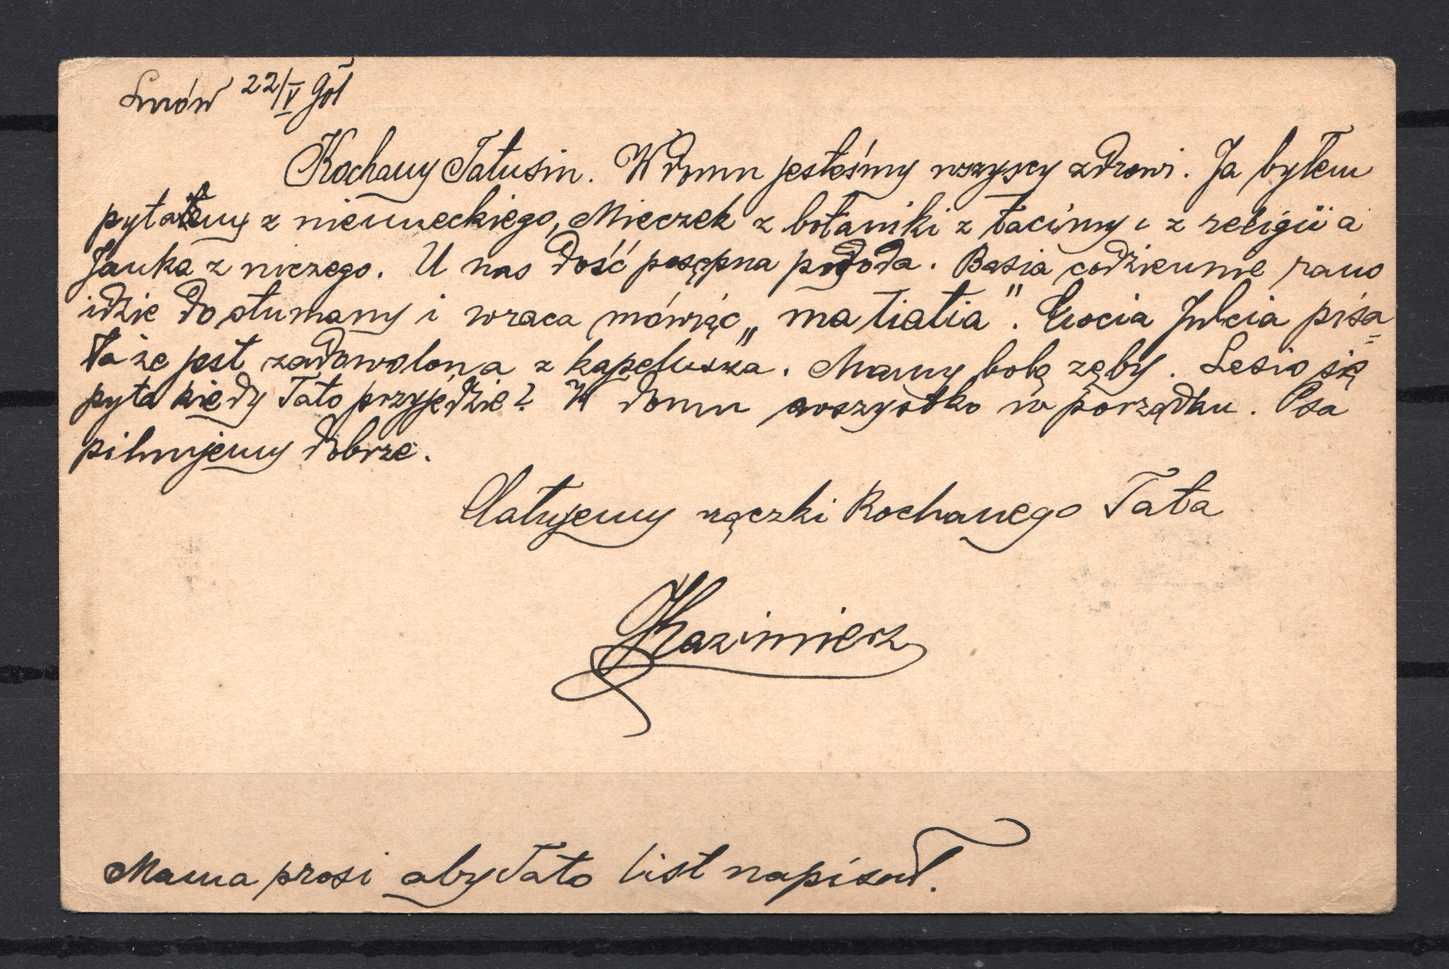 Lwów 22/V 901
Kochany Tatusiu. W domu jesteśmy wszyscy zdrowi. Ja byłem
pytany z niemieckiego, Mieczek z botaniki z łaciny i z religii a
Janka z niczego. U nas dość posępna pogoda. Basia codziennie rano
idzie do otumany i wraca mówiąc „ma tiatia". Ciocia Julcia pisa=
ła że jest zadowolona z kapelusza. Mamy bolą zęby. Lesio się
pyta kiedy Tato przyjedzie? W domu wszystko w porządku. Psa
pilnujemy dobrze.
Całujemy rączki Kochanego Tata
Kazimierz
Mama prosi aby Tato list napisał.